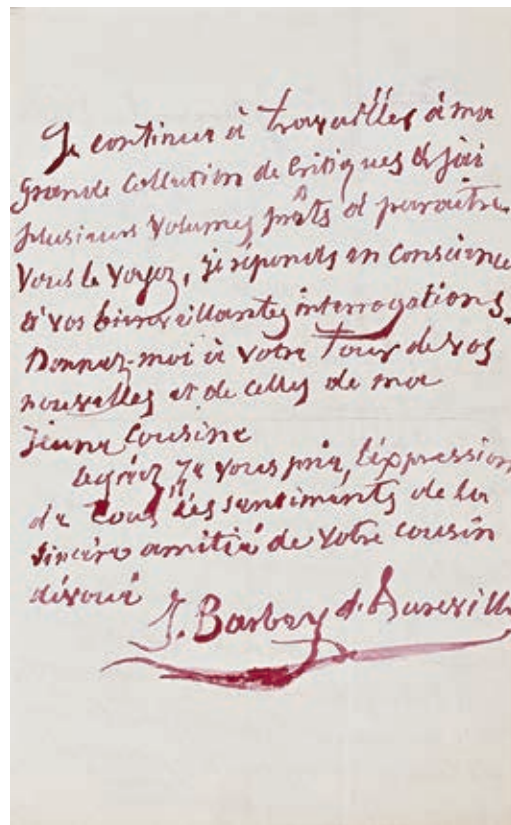 Je continue à travailler à ma
grande collection de critiques et j'ai
plusieurs volumes prêts à paraître.
Vous le voyez, je réponds en conscience
à vos bienveillantes interrogations.
Donnez-moi à votre tour de vos
nouvelles et de celles de ma
jeune cousine
je vous prie, l'expression
de tous les sentiments de la
sincère amitié de votre cousin
dévoué
J. Barbey d'Aurevilly